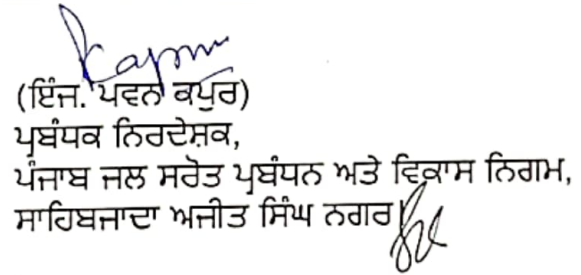 Kapur
(ਇੰਜ. ਪਵਨ ਕਪੁਰ)
ਪ੍ਰਬੰਧਕ ਨਿਰਦੇਸ਼ਕ,
ਪੰਜਾਬ ਜਲ ਸਰੋਤ ਪ੍ਰਬੰਧਨ ਅਤੇ ਵਿਕਾਸ ਨਿਗਮ,
ਸਾਹਿਬਜਾਦਾ ਅਜੀਤ ਸਿੰਘ ਨਗਰ।